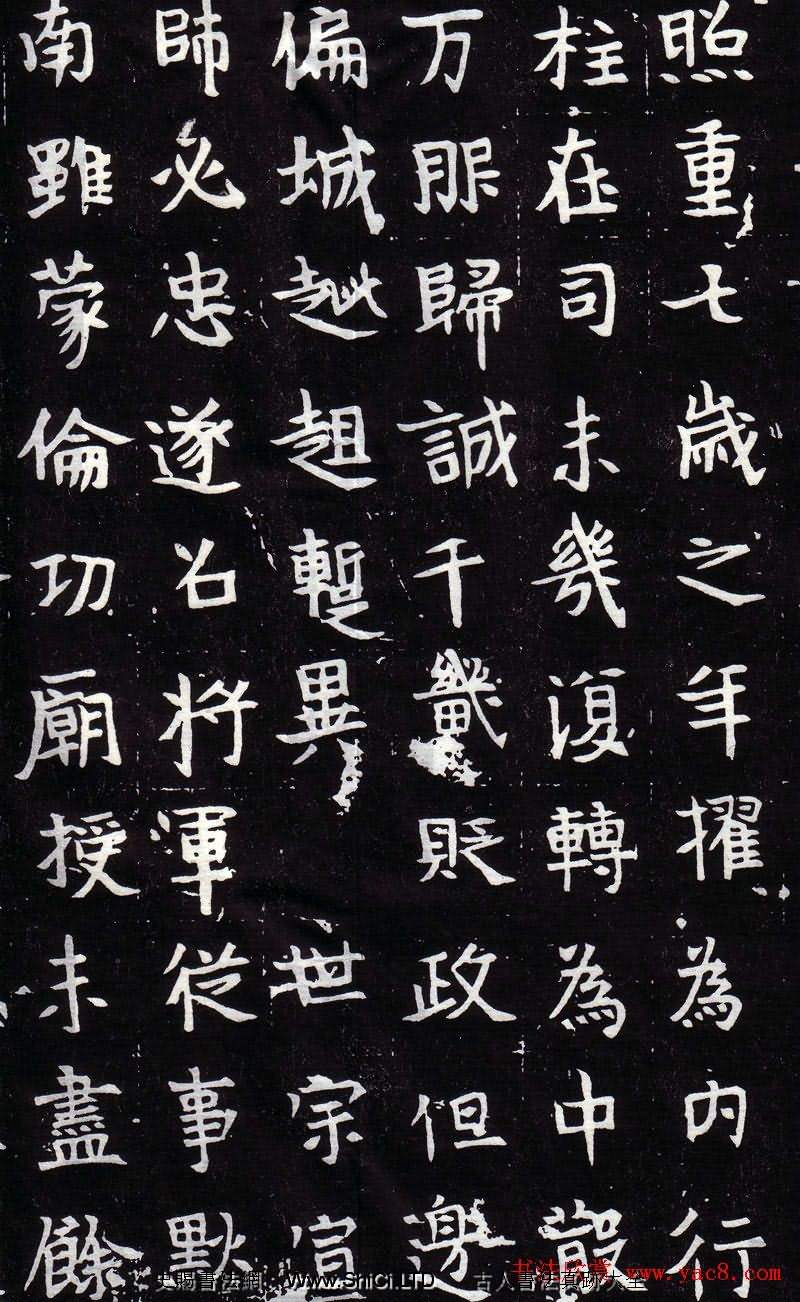 照重七歲之年擢為內行
柱在司未幾復轉為中散
万服歸誠千畿貶政但邊
偏城趑趄暫異世宗宣
師必忠遂召將渾從事默
南雖蒙倫功廟授未盡餘
史賜書法網:www.ShiCi.LTD 古人書法真跡大全
书法欣赏 www.yac8.com